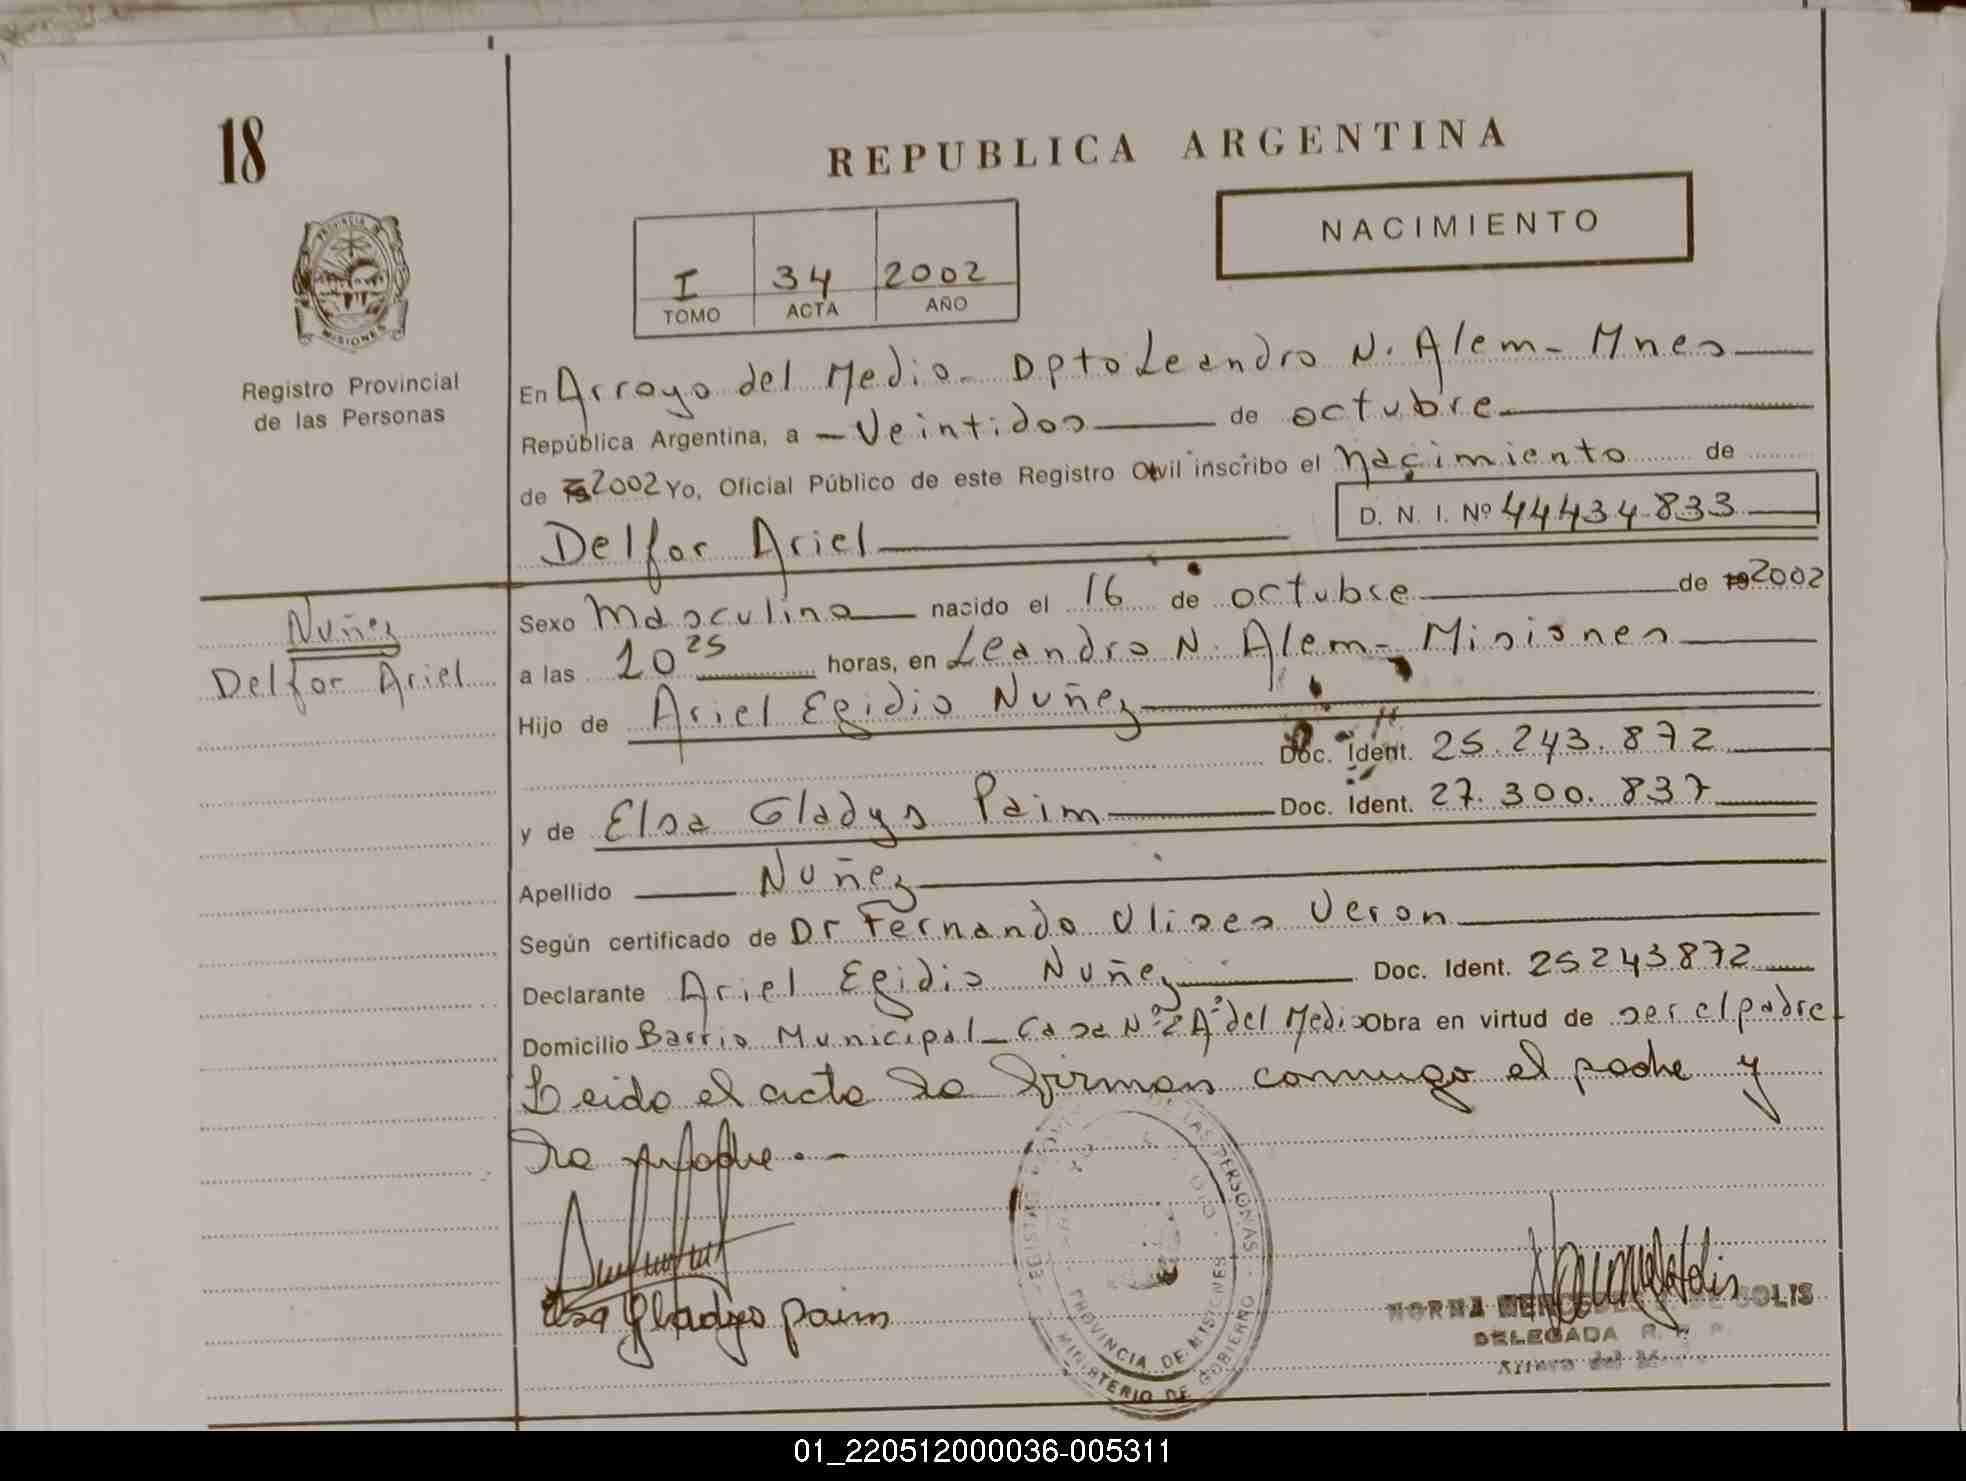 18
REPUBLICA ARGENTINA
NACIMIENTO
I 34 2002
TOMO ACTA AÑO
PROVINCIA D
MISIONES
Registro Provincial
de las Personas
En Arroyo del Medio - Dpto Leandro N. Alem - Mnes
República Argentina, a - Veintidos de octubre
de 19 2002 Yo, Oficial Público de este Registro Civil inscribo el Nacimiento de
D. N. I. Nº 44434833
Delfor Ariel
Nuñez
Delfor Ariel
Sexo Masculino nacido el 16 de octubre de 19 2002
a las 10 25 horas, en Leandro N. Alem - Misiones
Hijo de Ariel Egidio Nuñez
Doc. Ident. 25.243.872
y de Elsa Gladys Paim Doc. Ident. 27.300.837
Apellido Nuñez
Según certificado de Dr Fernando Ulises Veron
Declarante Ariel Egidio Nuñez Doc. Ident. 25243872
Domicilio Barrio Municipal - Casa Nº 2 Aº del Medio Obra en virtud de ser el padre
Leida el acta la firman conmigo el padre y
la madre. -
Elsa Gladys Paim
DE LAS PERSONAS
PROVINCIA DE MISIONES
MINISTERIO DE GOBIERNO
NORMA SOLIS
DELEGADA R. P. P.
01_220512000036-005311